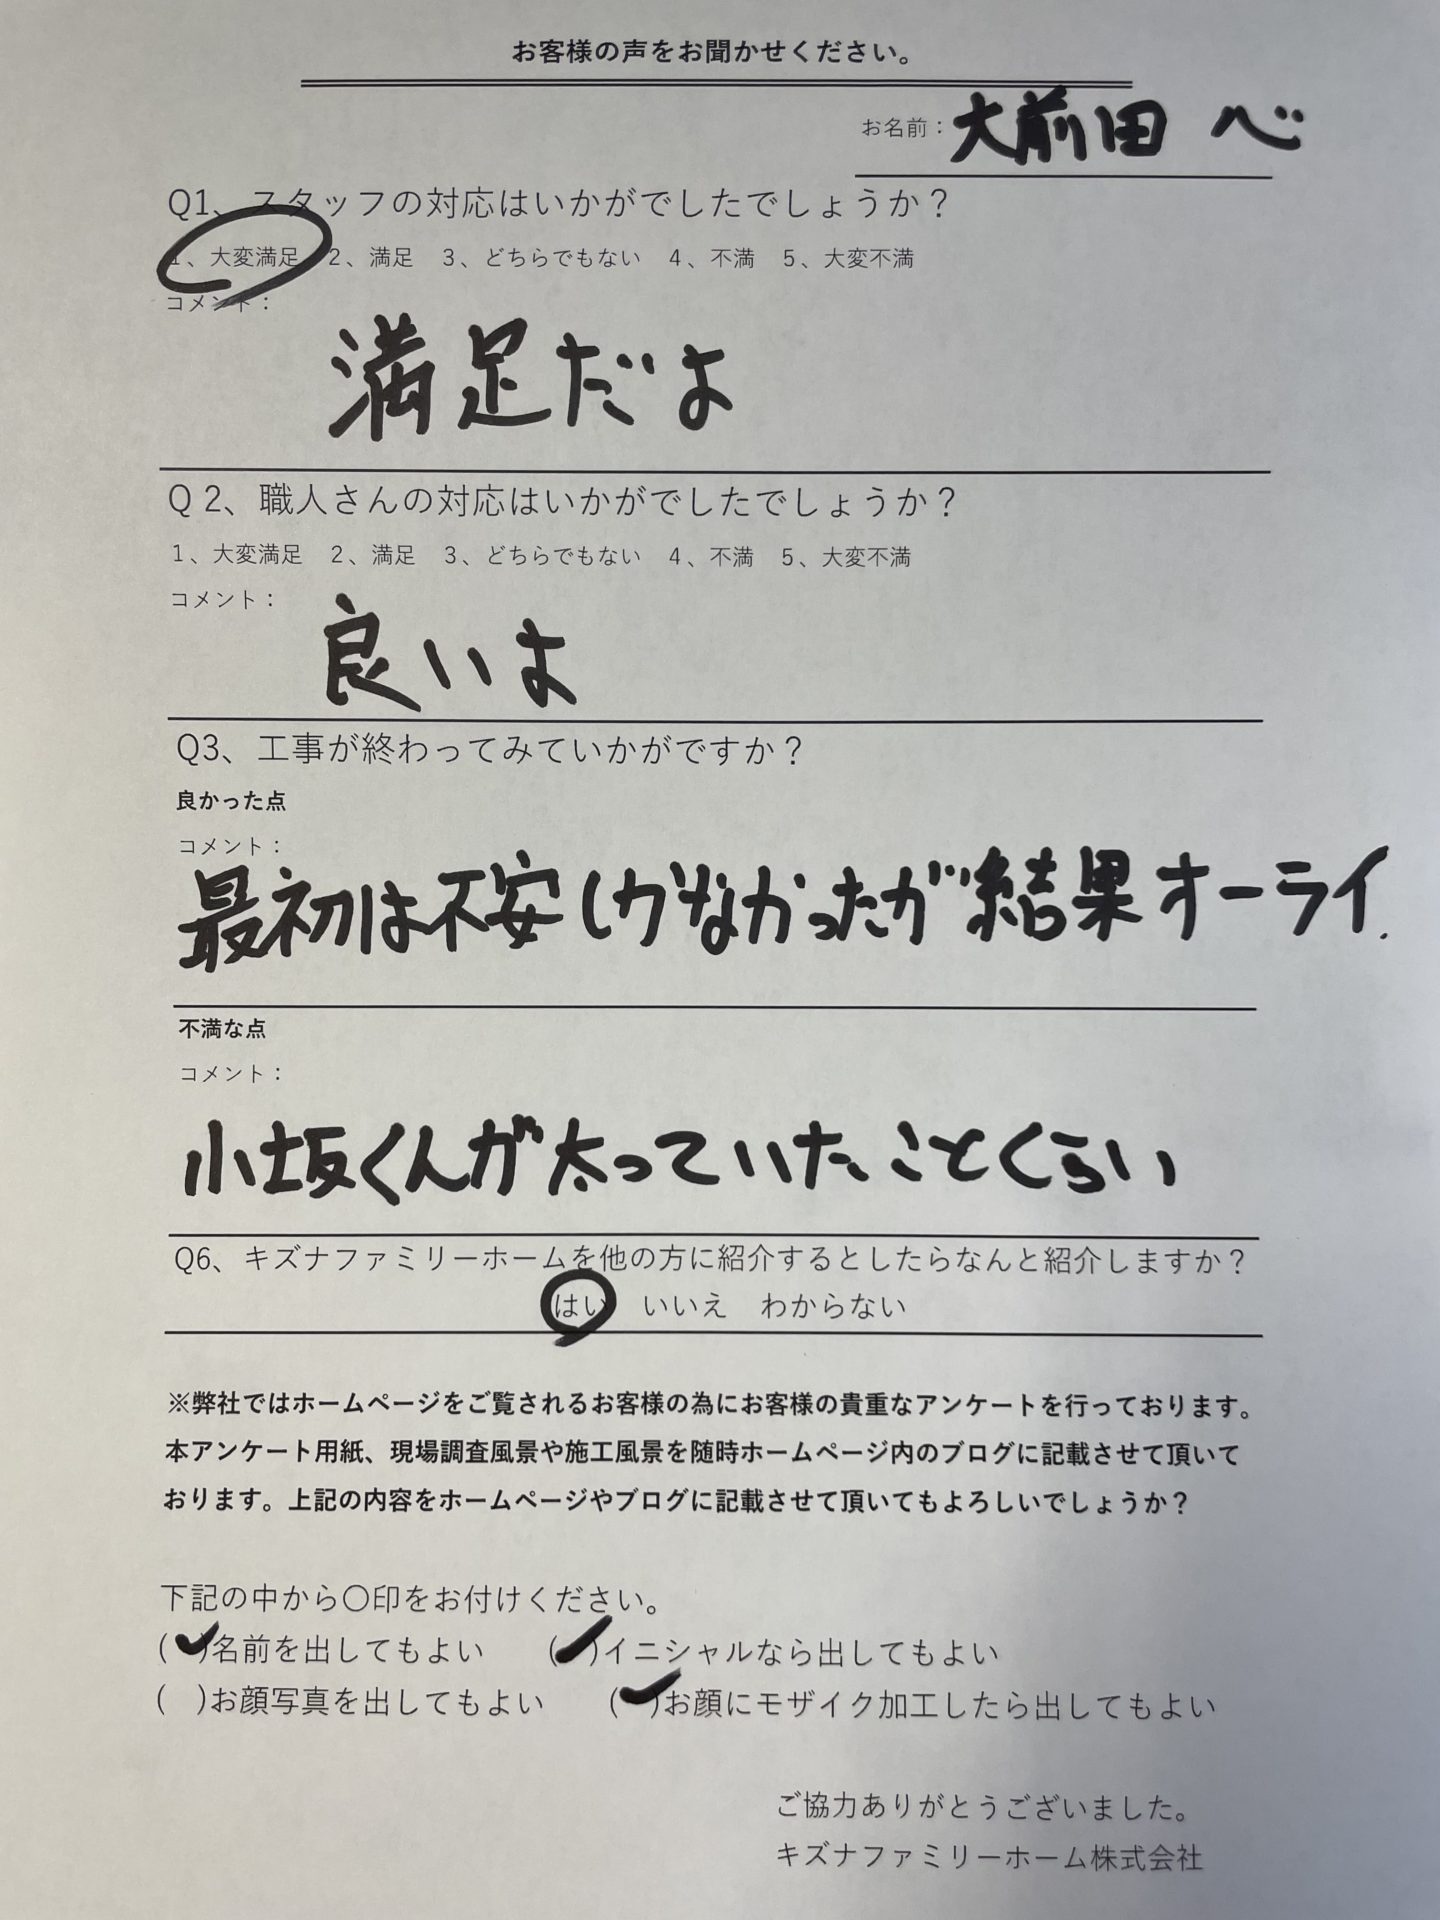 お客様の声をお聞かせください。
お名前：大前田 心
Q1、スタッフの対応はいかがでしたでしょうか？
1、大変満足　2、満足　3、どちらでもない　4、不満　5、大変不満
コメント：
満足だよ
Q 2、職人さんの対応はいかがでしたでしょうか？
1、大変満足　2、満足　3、どちらでもない　4、不満　5、大変不満
コメント：
良いよ
Q3、工事が終わってみていかがですか？
良かった点
コメント：
最初は不安しかなかったが結果オーライ.
不満な点
コメント：
小坂くんが太っていたことくらい
Q6、キズナファミリーホームを他の方に紹介するとしたらなんと紹介しますか？
はい　いいえ　わからない
※弊社ではホームページをご覧されるお客様の為にお客様の貴重なアンケートを行っております。
本アンケート用紙、現場調査風景や施工風景を随時ホームページ内のブログに記載させて頂いて
おります。上記の内容をホームページやブログに記載させて頂いてもよろしいでしょうか？
下記の中から〇印をお付けください。
(✓)名前を出してもよい　(✓)イニシャルなら出してもよい
(　)お顔写真を出してもよい　(✓)お顔にモザイク加工したら出してもよい
ご協力ありがとうございました。
キズナファミリーホーム株式会社